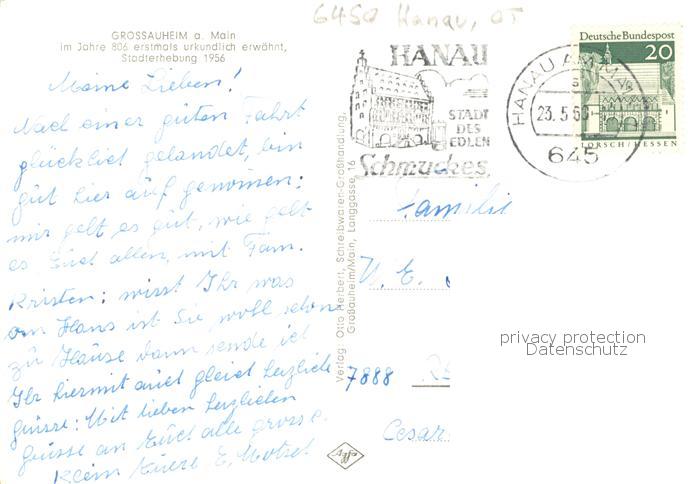 6450 Hanau, OT
GROSSAUHEIM a. Main
im Jahre 806 erstmals urkundlich erwähnt,
Stadterhebung 1956
Meine Lieben!
Nach einer guten Fahrt
glücklich gelandet, bin
gut hier auf genomen:
mir geht es gut, wie geht
es Euch allen, mit Fam.
Kristen: wisst Ihr was
om Hans ist Sie wohl schon
zu Hause dann sende ich
Ihr hiermit auch gleich herzliche
grüsse: Mit lieben herzlichen
grüsse an Euch alle grosse.
Klein Euere E.
Verlag Otto Herbert, Schreibwaren-Großhandlung,
Großauheim/Main, Langgasse 16
HANAU
STADT
DES
EDLEN
Schmuckes
HANAU AM MAIN
23.5.
645
Deutsche Bundespost
20
LORSCH/HESSEN
Familie
W. E.
7888
Cesar
privacy protection
Datenschutz